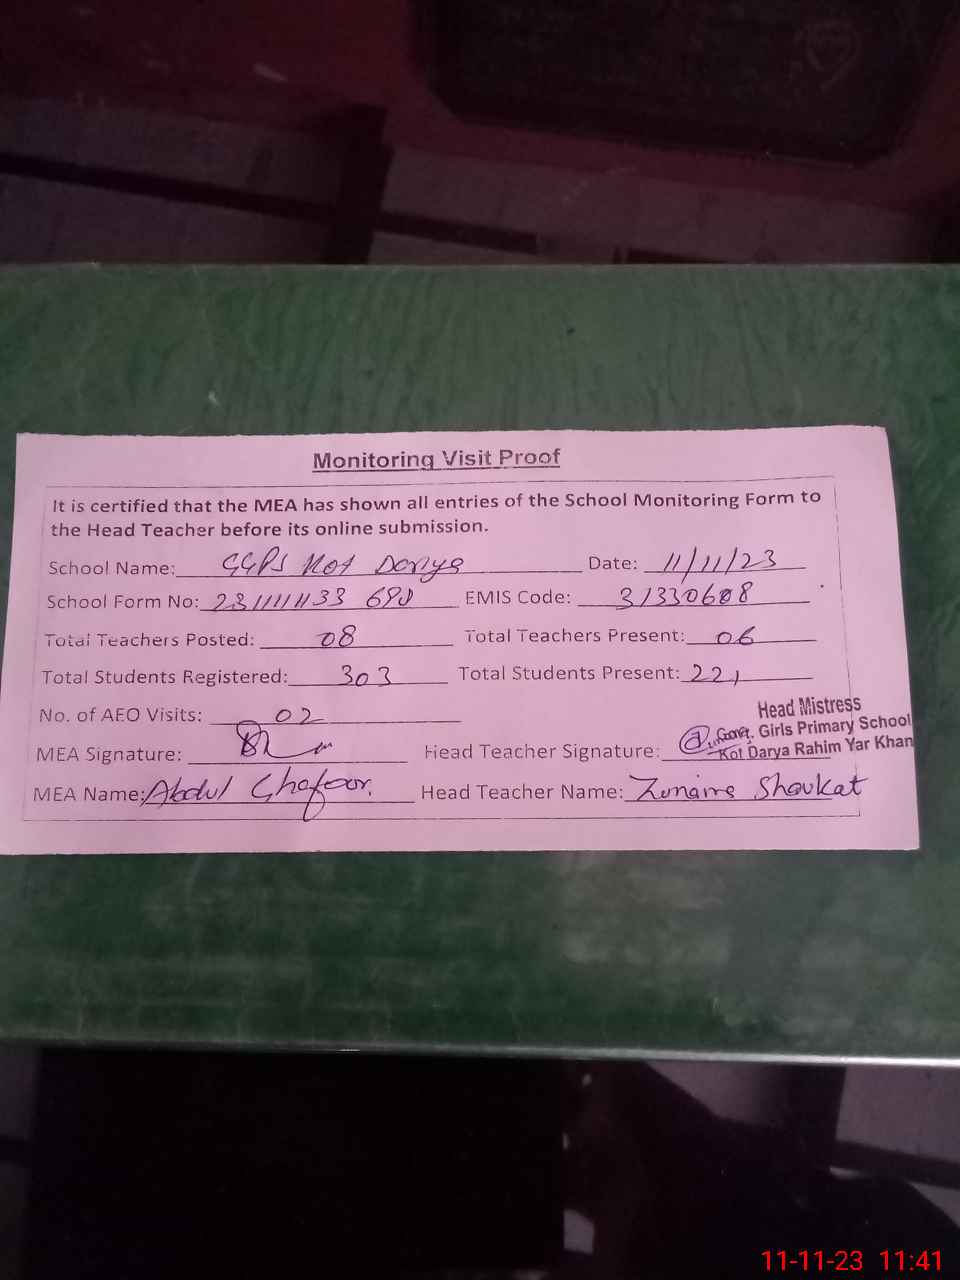 Monitoring Visit Proof
It is certified that the MEA has shown all entries of the School Monitoring Form to
the Head Teacher before its online submission.
School Name: GGPS Kot Darya Date: 11/11/23
School Form No: EMIS Code: 31330608
Total Teachers Posted: 08 Total Teachers Present: 06
Total Students Registered: 303 Total Students Present: 221
No. of AEO Visits: 02
Head Mistress
Govt. Girls Primary School
Kot Darya Rahim Yar Khan
MEA Signature: Head Teacher Signature:
MEA Name: Abdul Ghafoor. Head Teacher Name: Zunaira Shoukat
11-11-23 11:41